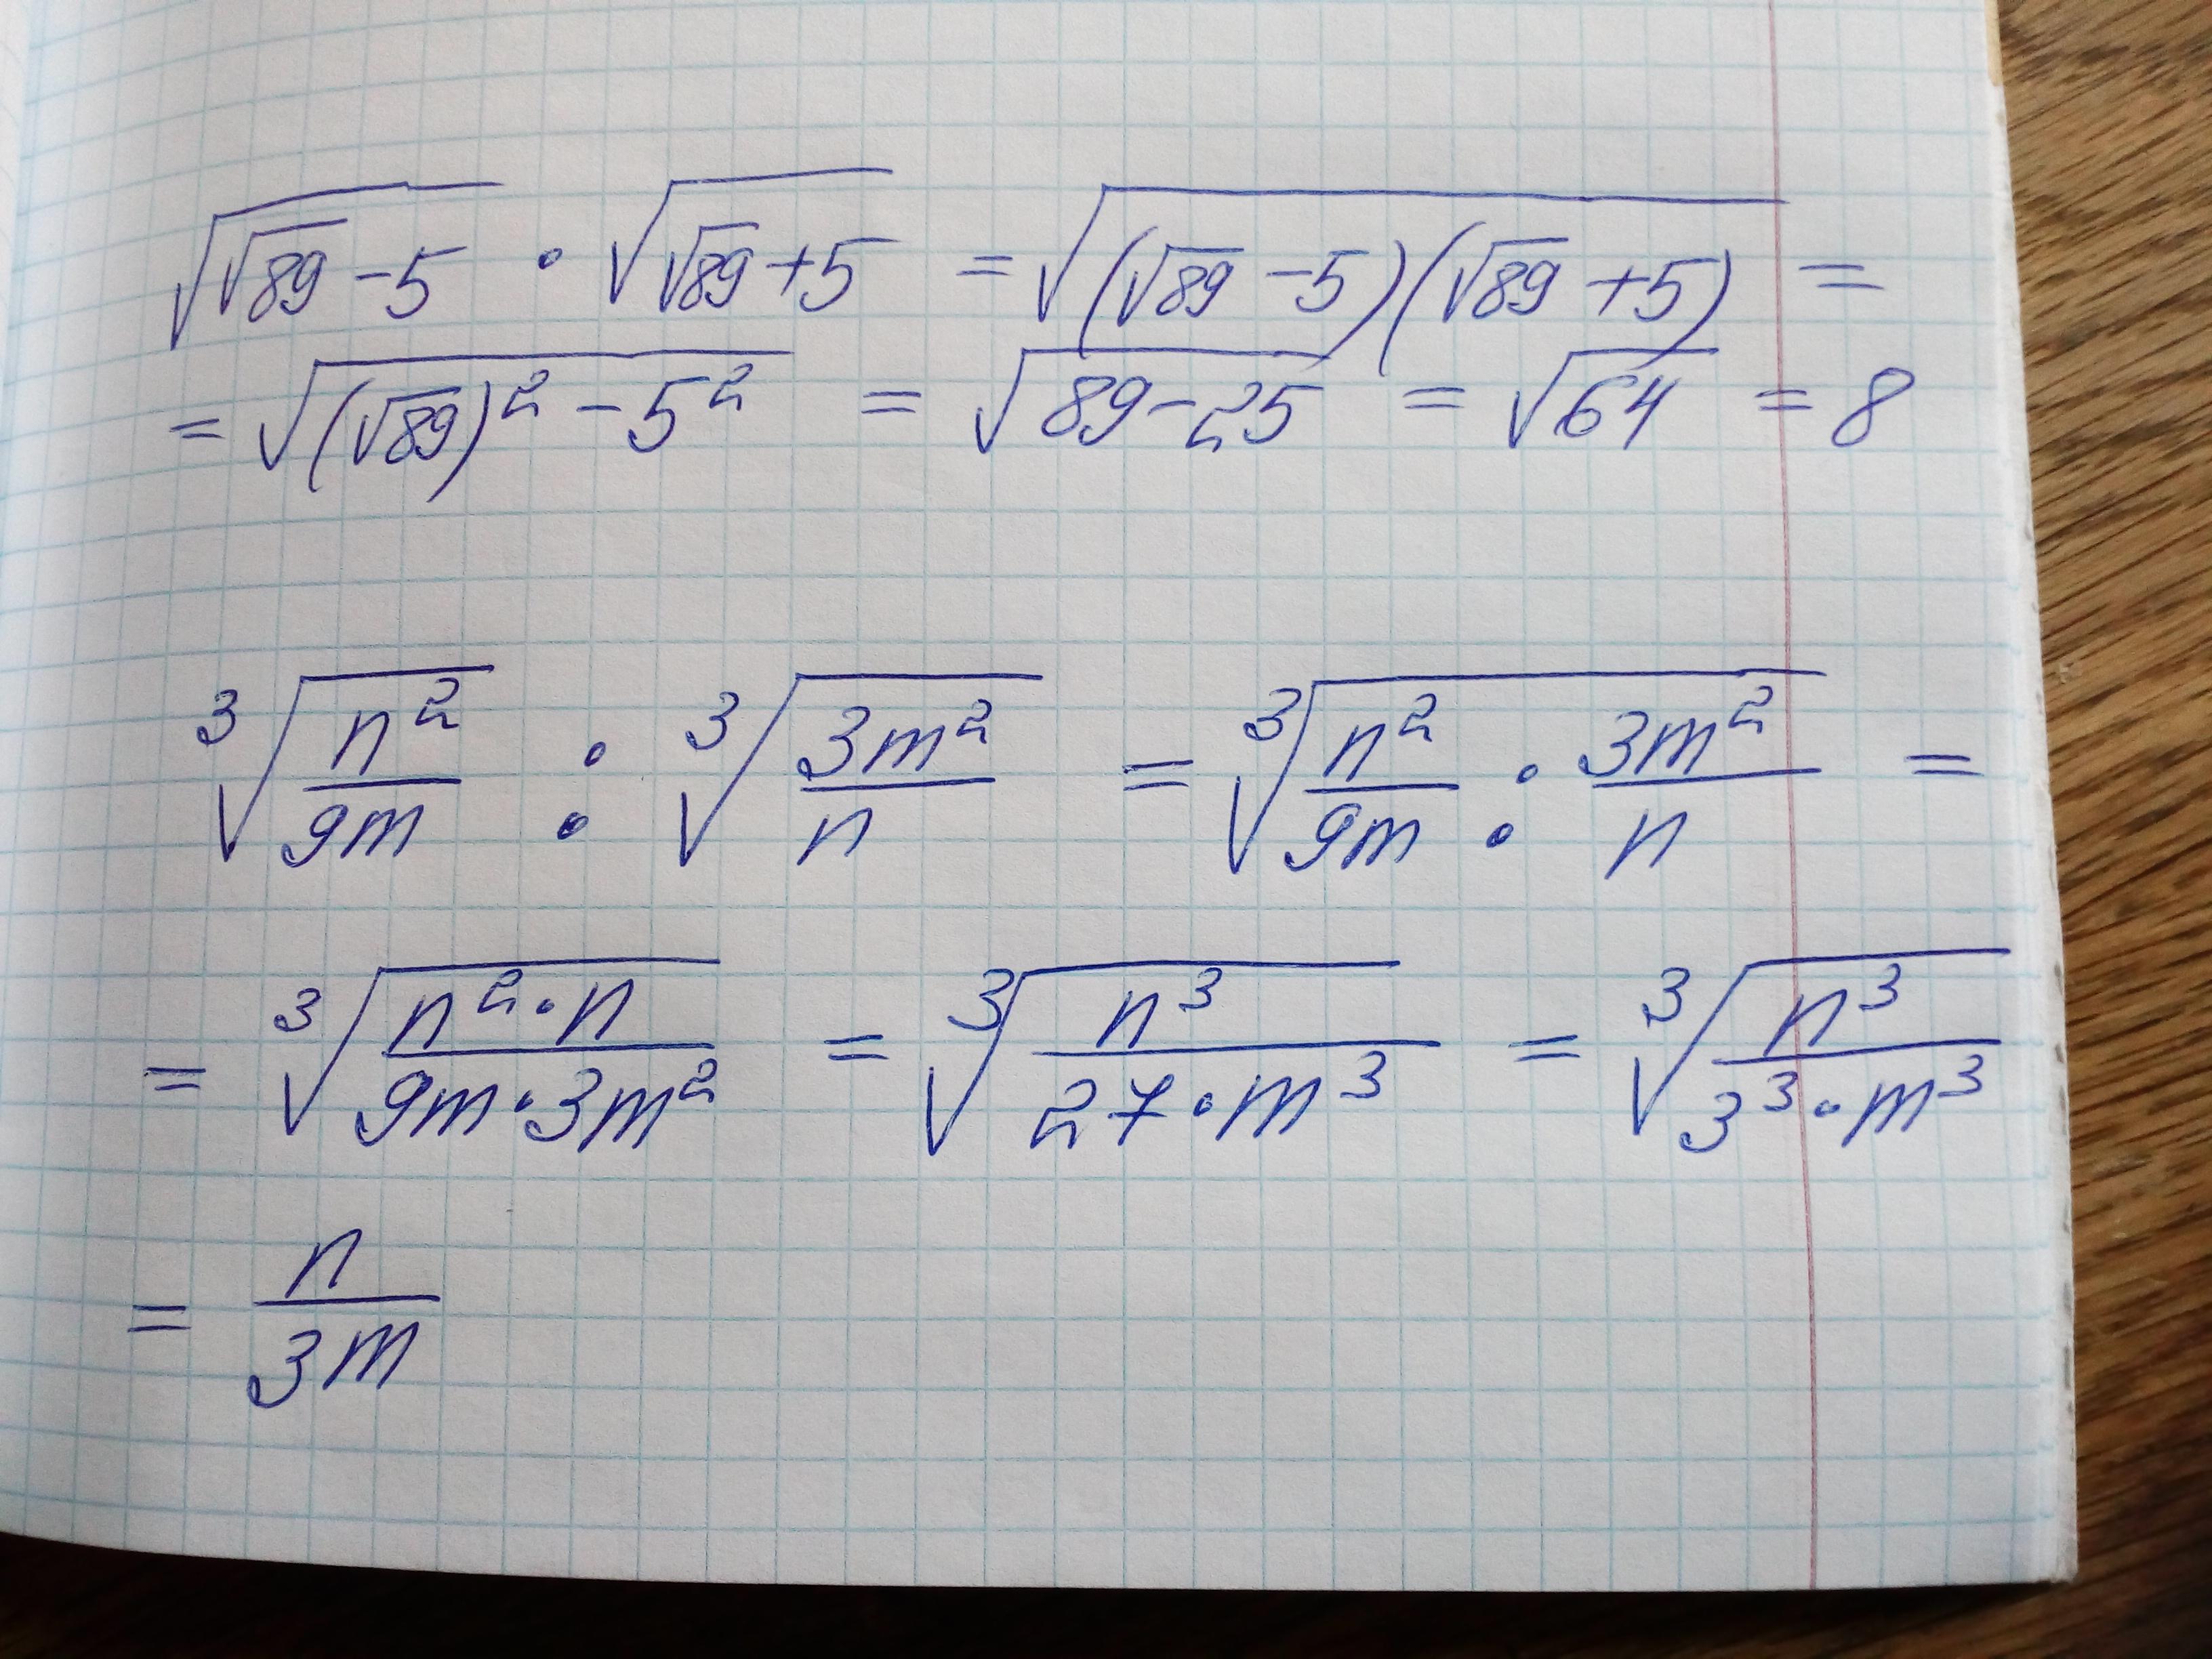 √(√89 − 5) · √(√89 + 5) = √((√89 − 5)(√89 + 5)) =
= √((√89)² − 5²) = √(89 − 25) = √64 = 8
∛(n²/9m) : ∛(3m²/n) = ∛(n²/9m : 3m²/n) =
= ∛((n² · n)/(9m · 3m²)) = ∛(n³/(27 · m³)) = ∛(n³/(3³ · m³))
= n/3m